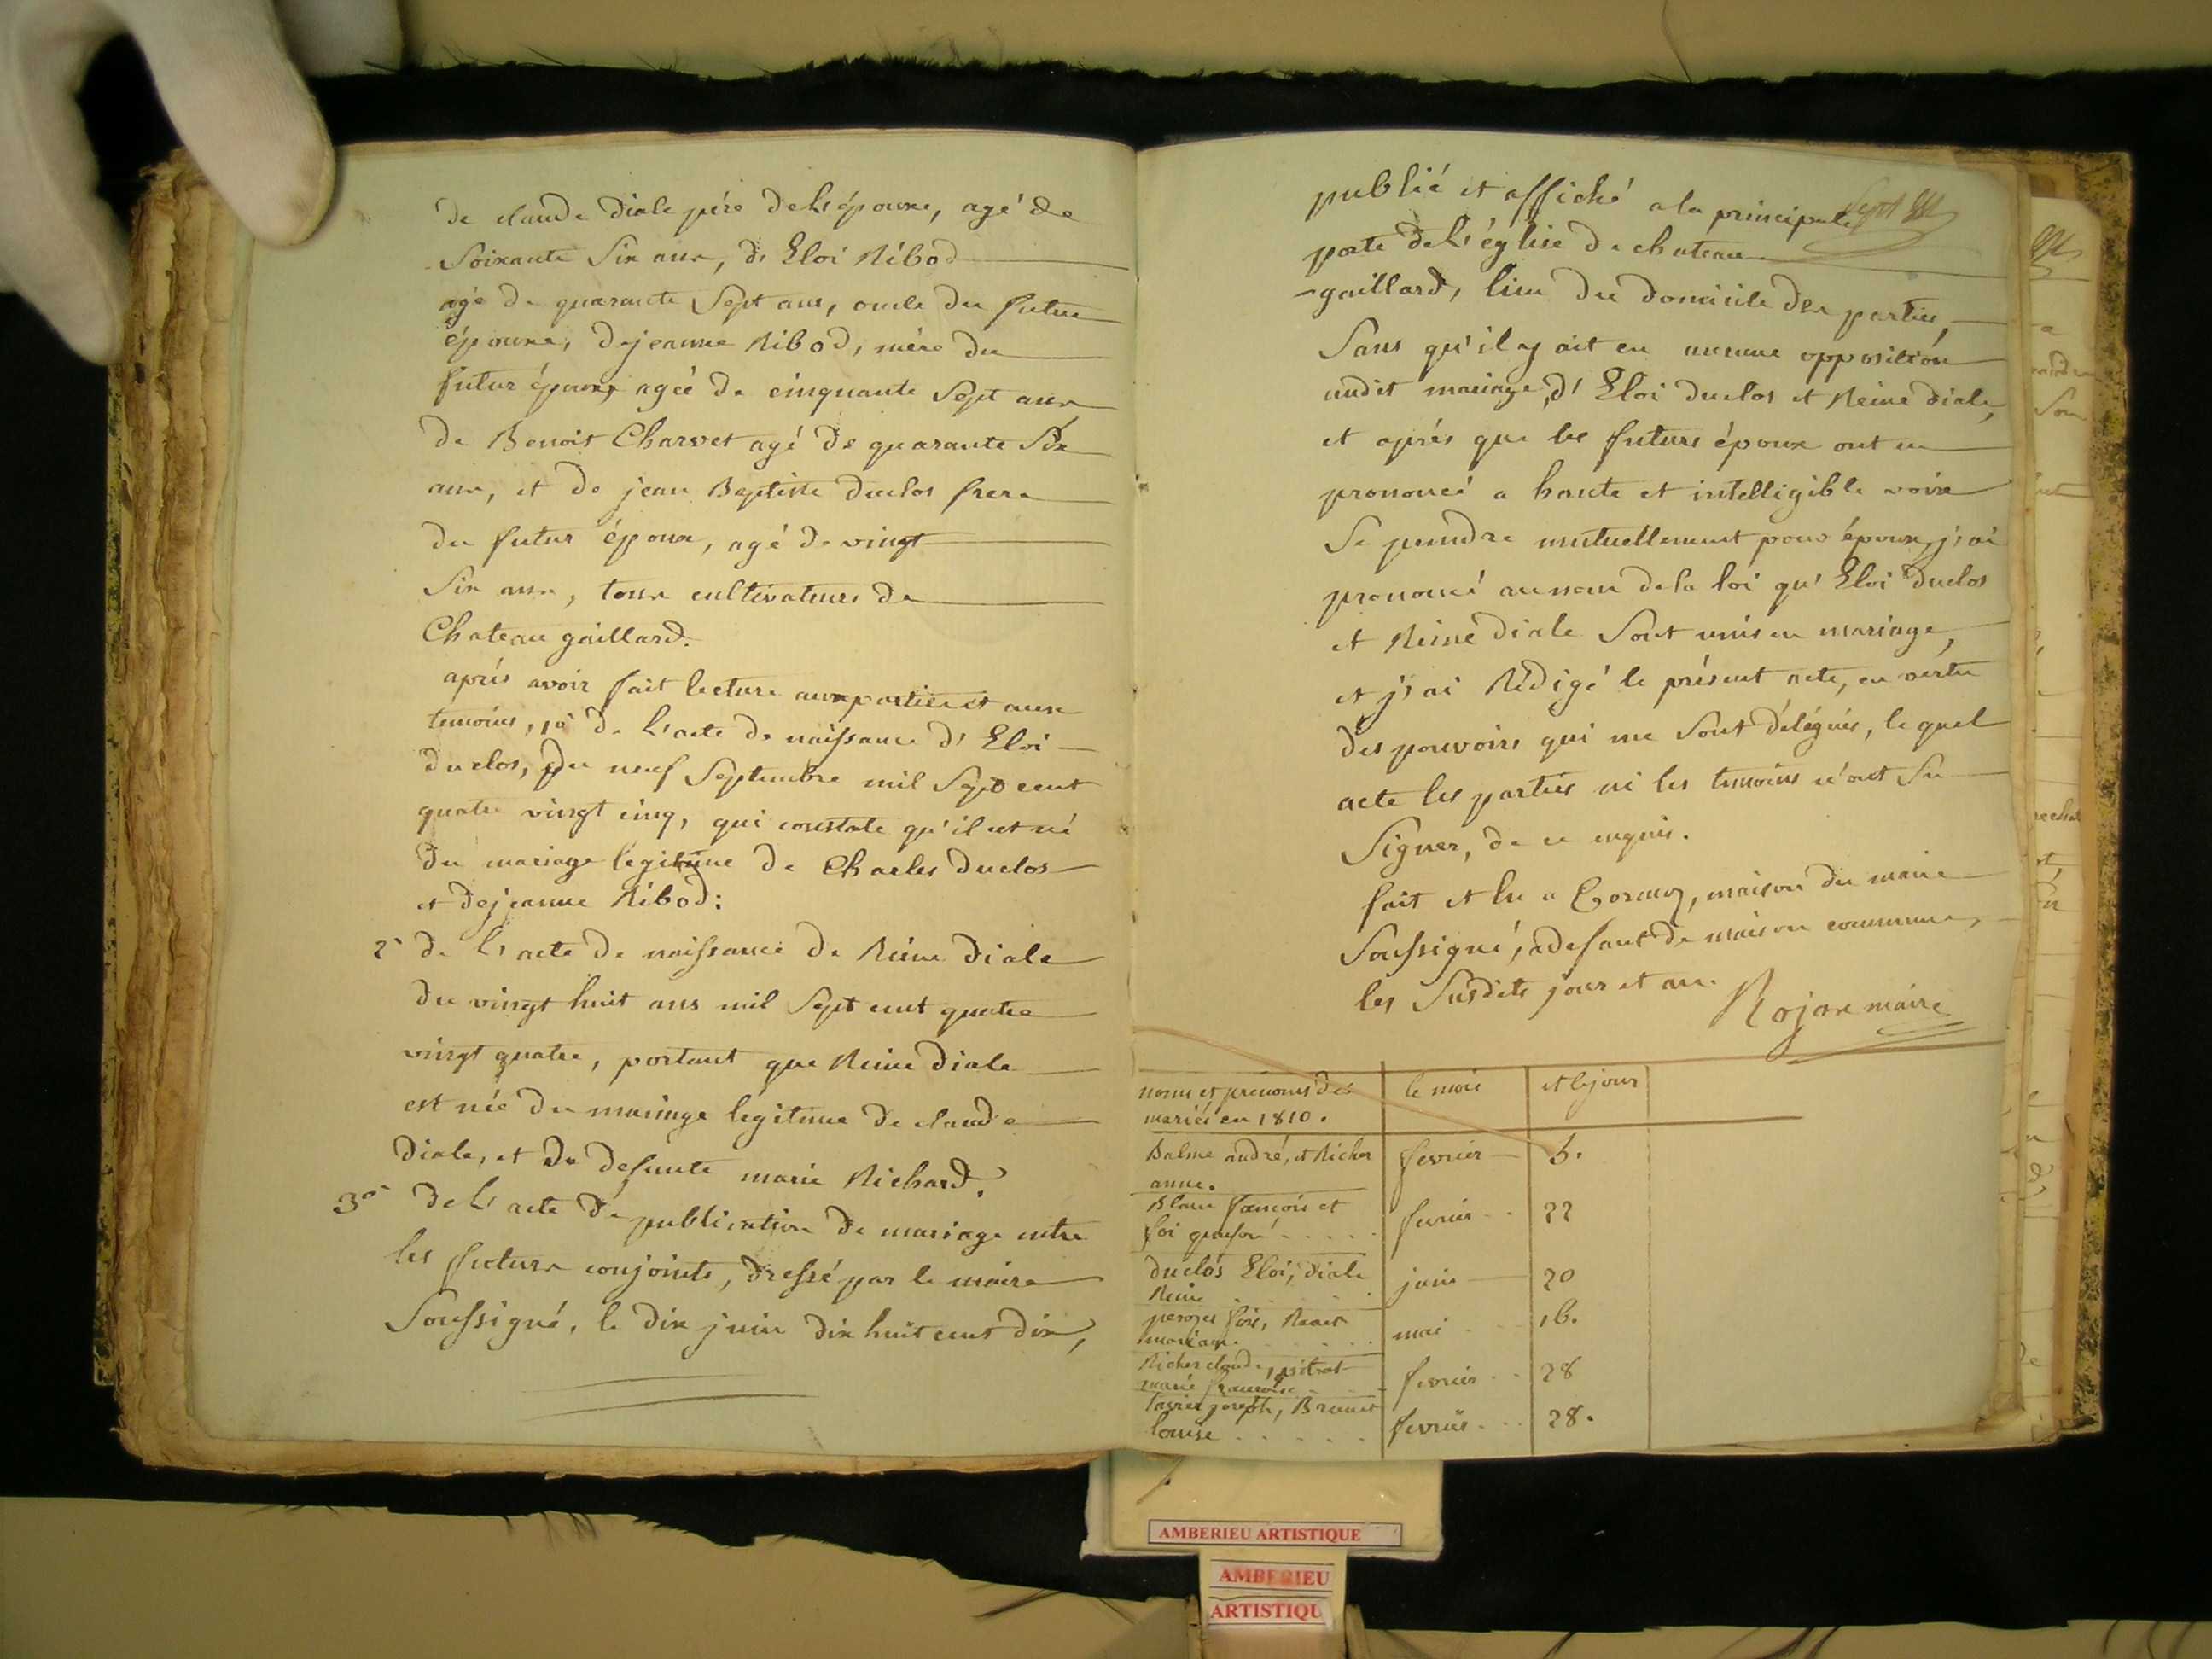 de claude diale père de l'épouse, agé de
Soixante Six ans, d'Eloi Ribod
agé de quarante Sept ans, oncle du futur
époux, de jeanne Ribod, mère du
futur époux, agée de cinquante Sept ans
de Benoit Charvet agé de quarante Six
ans, et de jean Baptiste duclos frere
du futur époux, agé de vingt
Six ans, tous cultivateurs de
Chateau gaillard.
aprés avoir fait lecture aux parties et aux
temoins, 1º de l'acte de naissance d'Eloi
duclos, du neuf Septembre mil Sept cent
quatre vingt cinq, qui constate qu'il est né
du mariage legitime de Charles duclos
et de jeanne Ribod:
2º de l'acte de naissance de Reine diale
du vingt huit mil Sept cent quatre
vingt quatre, portant que Reine diale
est née du mariage legitime de claude
diale, et de defunte marie Richard.
3º de l'acte de publication de mariage entre
les futurs conjoints, dressé par le maire
Soussigné, le dix juin dix huit cent dix,
Sept
publié et affiché a la principale
porte de l'église de chateau
-gaillard, lieu du domicile des parties,
Sans qu'il y ait eu aucune opposition
audit mariage, d'Eloi duclos et Reine diale,
et aprés que les futurs époux ont eu
prononcé a haute et intelligible voix
Se prendre mutuellement pour époux, j'ai
prononcé au nom de la loi qu'Eloi duclos
et Reine diale Sont unis en mariage,
et j'ai Rédigé le présent acte, en vertu
des pouvoirs qui me Sont délégués, le quel
acte les parties ni les temoins n'ont Su
Signer, de ce enquis.
fait et lu a Cormoz, maison du maire
Soussigné, a defaut de maison commune,
les Susdits jour et an.
Rojon maire
noms et prenoms des mariés en 1810. le mois et le jour
Balme andré, et Richer
anne. fevrier 6.
Blanc francois et
foi fevrier 22
duclos Eloi, diale
Reine juin 20
mai 16.
Richer claude,
marie francoise fevrier 28
tavier joseph, Brunet
louise fevrier 28.
AMBERIEU ARTISTIQUE
AMBERIEU
ARTISTIQU